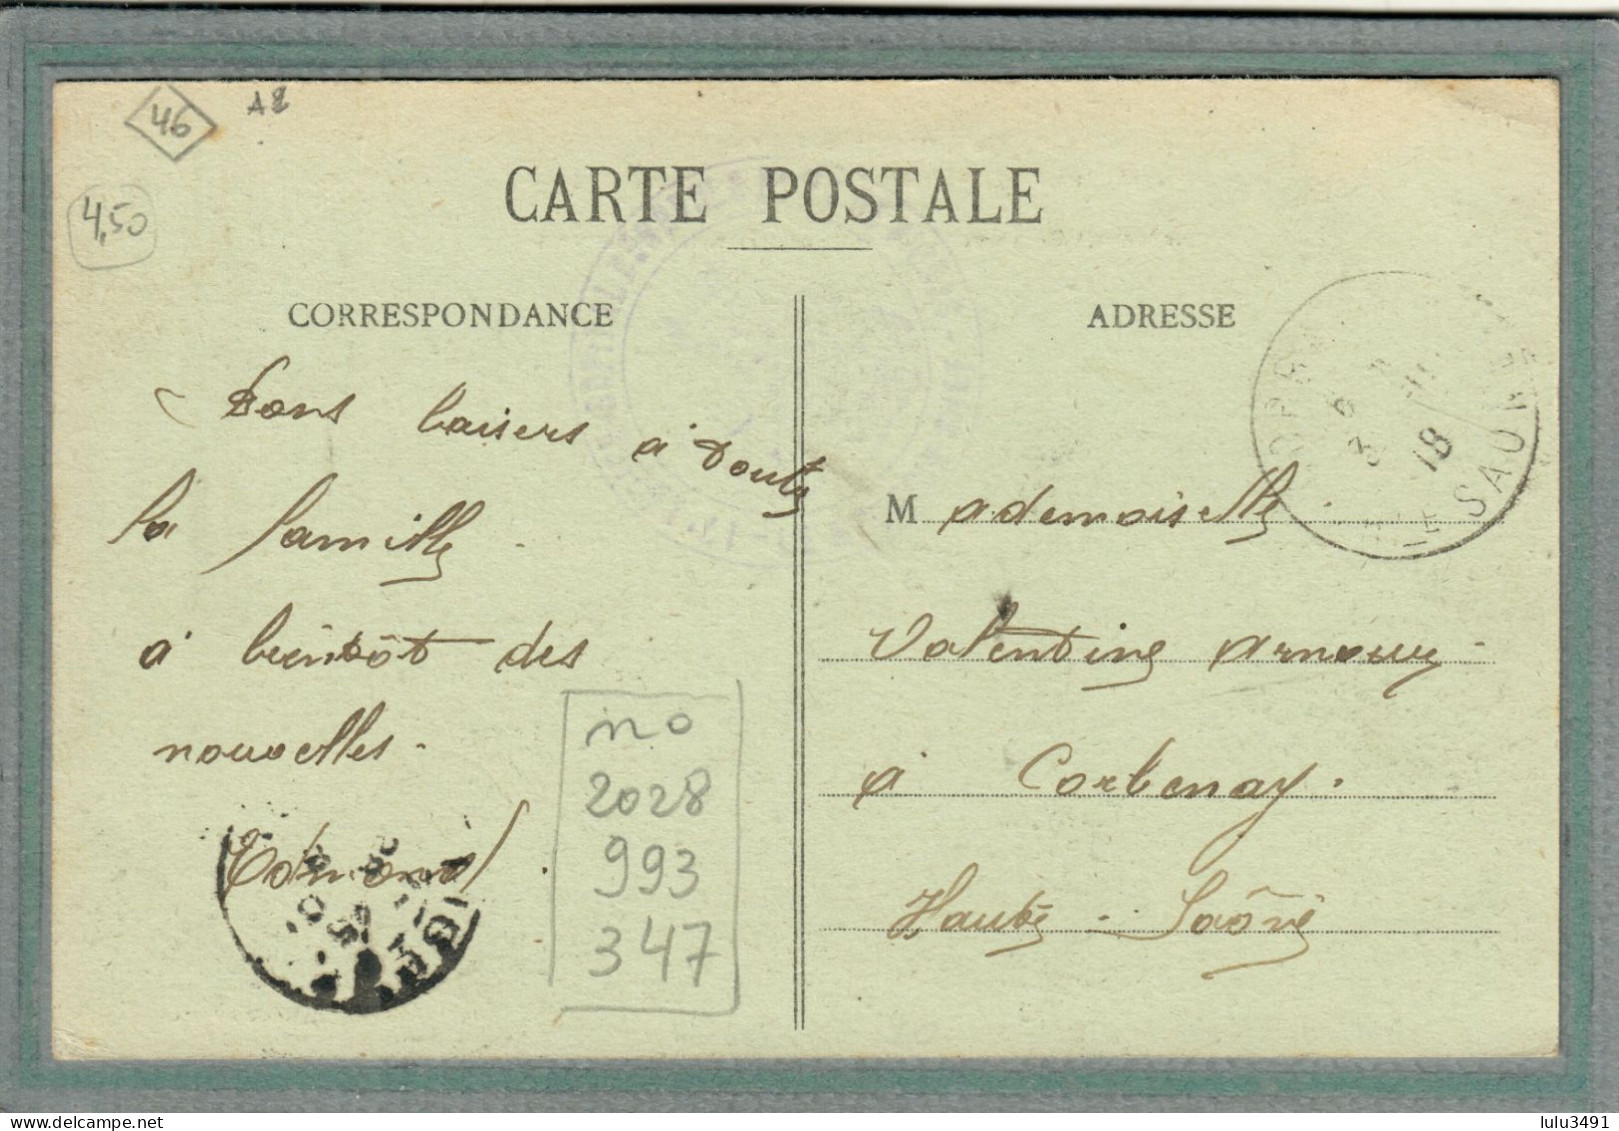 46
A2
4,50
CARTE POSTALE
CORRESPONDANCE
bons baisers à toute
la famille
à bientôt des
nouvelles.
Edmond.
no
2028
993
347
ADRESSE
18
SAONE
Mademoiselle
Valentine Arnoux
à Corbenay.
Haute-Saône
lulu3491